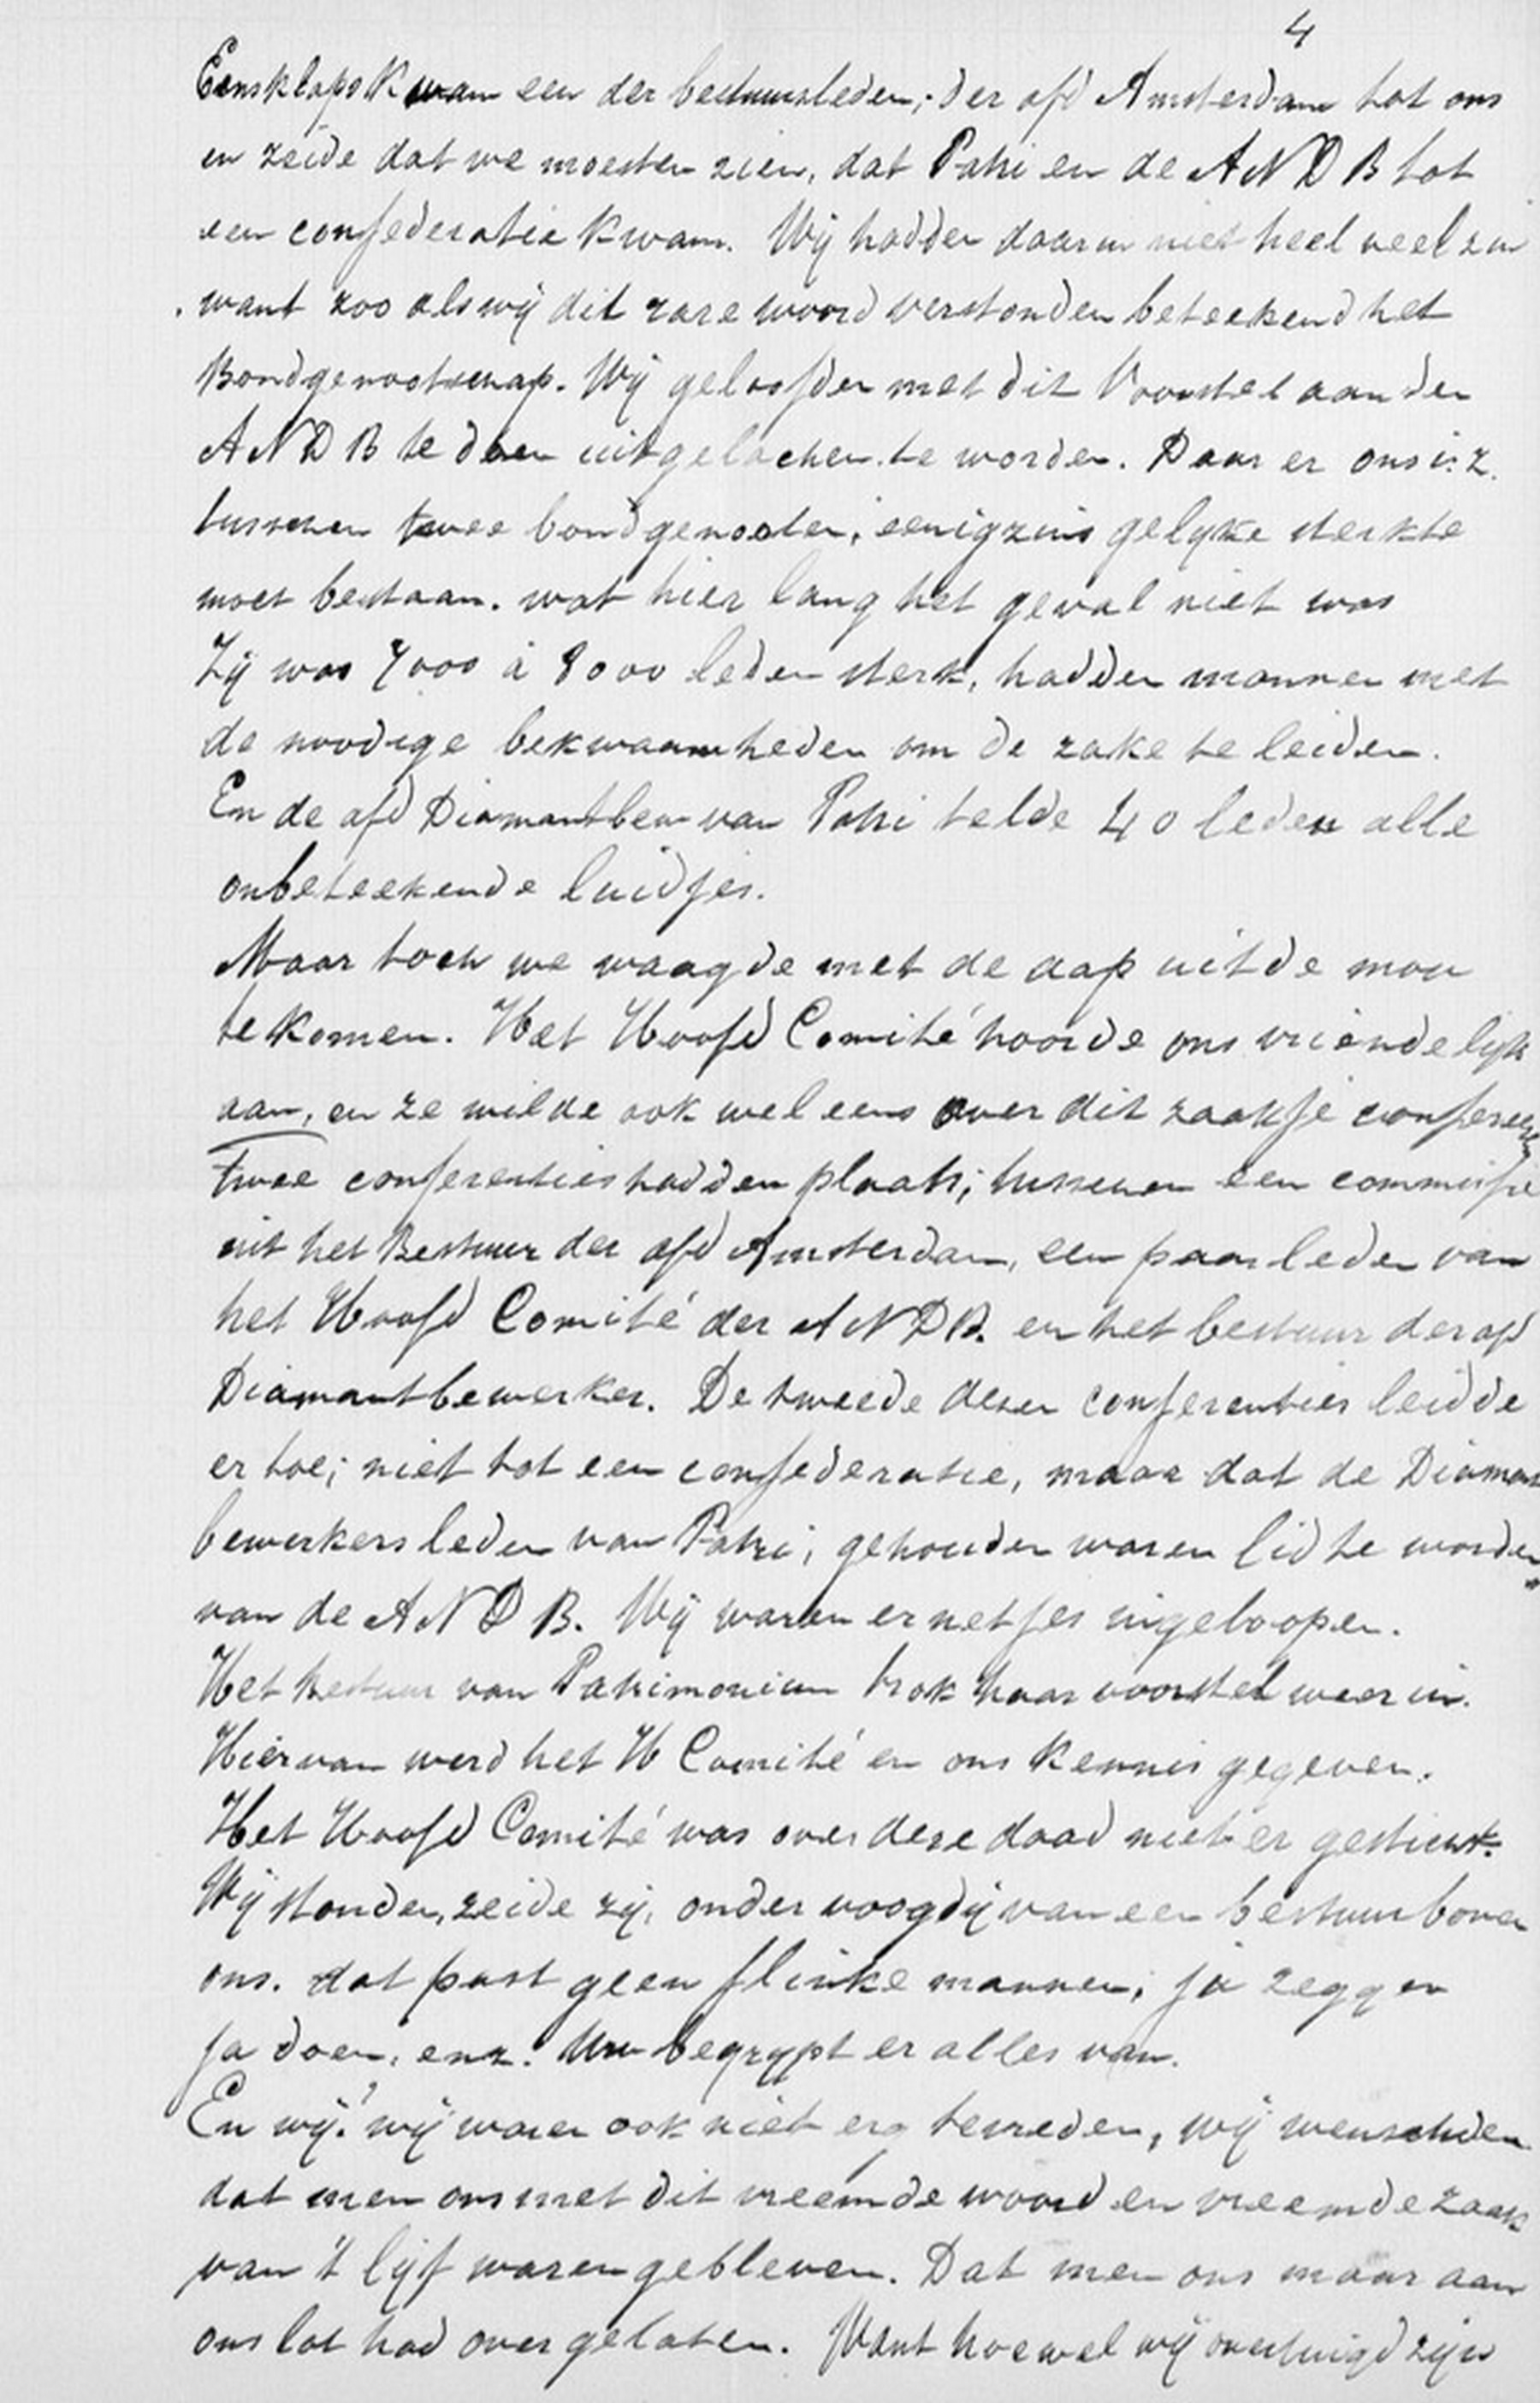 4
Eensklaps kwam een der bestuursleden, der afd Amsterdam tot ons
en zeide dat we moesten zien, dat Patri en de ANDB tot
een confederatie kwam. Wij hadden daarin niet heel veel zin
want zoo als wij dit rare woord verstonden beteekend het
Bondgenootschap. Wij geloofden met dit Voorstel aan den
ANDB te doen uitgelachen te worden. Daar er ons i.z.
tusschen twee bondgenooten, eenigzins gelijke sterkte
moet bestaan. wat hier lang het geval niet was
Zij was 7000 à 8000 leden sterk, hadden mannen met
de noodige bekwaamheden om de zake te leiden.
En de afd Diamantbew van Patri telde 40 leden alle
onbeteekende luidjes.
Maar toch we waagde met de aap uit de mou
te komen. Het Hoofd Comité hoorde ons vriendelijk
aan, en ze wilde ook wel eens over dit zaakje
Twee conferenties hadden plaats; tusschen een commissie
uit het Bestuur der afd Amsterdam, een paar leden van
het Hoofd Comité der ANDB. en het bestuur der afd
Diamantbewerker. De tweede dezer conferenties leidde
er toe; niet tot een confederatie, maar dat de Diamant
bewerkers leden van Patri, gehouden waren lid te worden
van de ANDB. Wij waren er netjes ingeloopen.
Het Bestuur van Patrimonium trok haar voorstel weer in.
Hiervan werd het H Comité en ons kennis gegeven.
Het Hoofd Comité was over deze daad niet er gesticht.
Wij stonden, zeide zij, onder voogdij van een bestuur boven
ons. dat past geen flinke mannen, ja zeggen
ja doen, enz. Uw begrypt er alles van.
En wij? wij waren ook niet erg tevreden, wij wenschden
dat men ons met dit vreemde woord en vreemde zaak
van 't lijf waren gebleven. Dat men ons maar aan
ons lot had over gelaten. Want hoewel wij overtuigd zijn